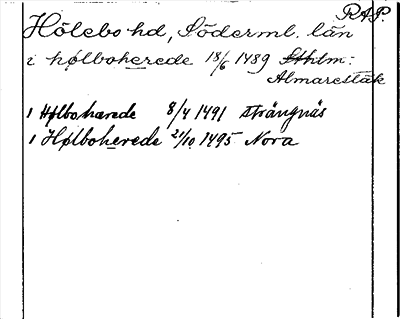 RAP.
Hölebo hd, Söderml. län
i hølboherede 18/6 1489 Sthlm:
Almarestäk
1 Hølboharede 8/4 1491 strängnäs
1 Hølboherede 21/10 1495 Nora